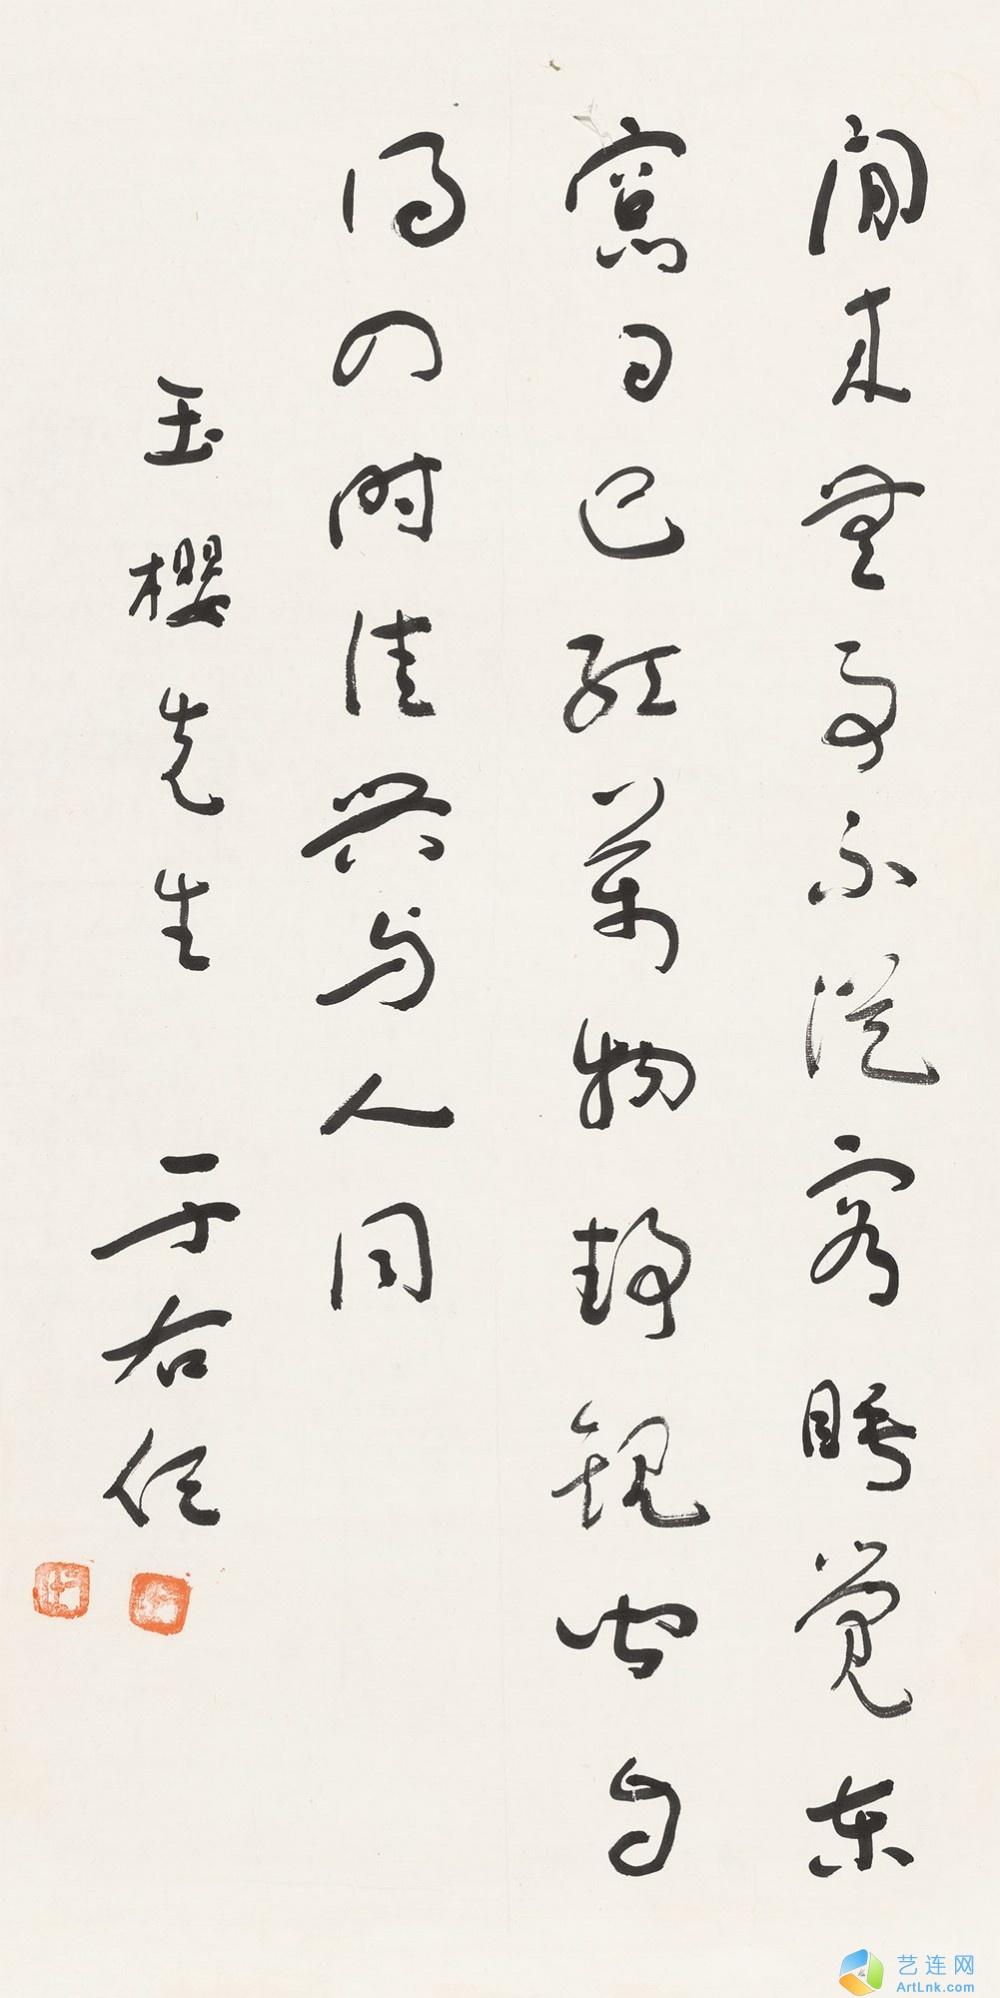 閒来無事不從容睡覺東
窓日已紅萬物静觀皆自
得四时佳興与人同
玉櫻先生 于右任
艺连网
ArtLnk.com